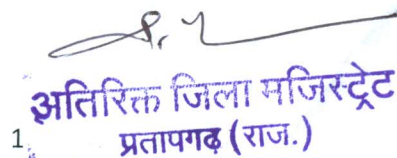 अतिरिक्त जिला मजिस्ट्रेट
1 प्रतापगढ़ (राज.)